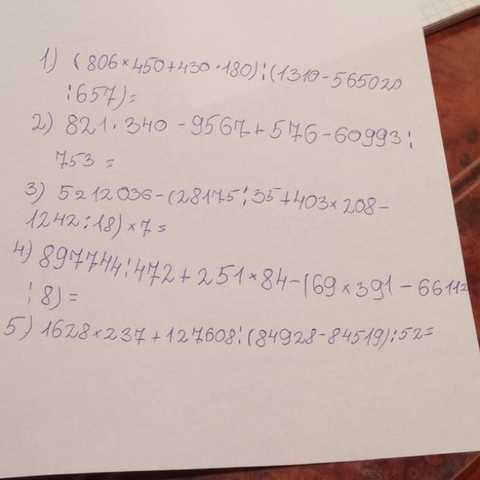 1) (806×450+430·180):(1310-565020
:657)=
2) 821·340-9567+576-60993:
753=
3) 5212036-(28175:35+403×208-
1242:18)×7=
4) 897744:472+251×84-(69×391-66112
:8)=
5) 1628×237+127608:(84928-84519):52=